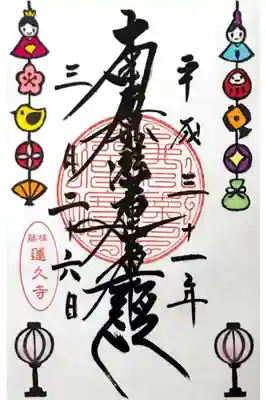 平成三十一年
南無妙法蓮華経
三月二十六日
蓮久寺